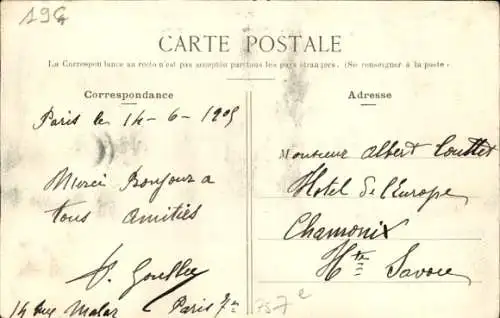 196
CARTE POSTALE
La Correspondance au recto n'est pas acceptée par tous les pays étrangers. (Se renseigner à la poste.)
Correspondance
Paris le 14-6-1905
Merci Bonjour a
tous amitiés
14 rue Malar Paris 7e
Adresse
Monsieur Albert Couttet
Hotel de l'Europe
Chamonix
Hte Savoie
757e